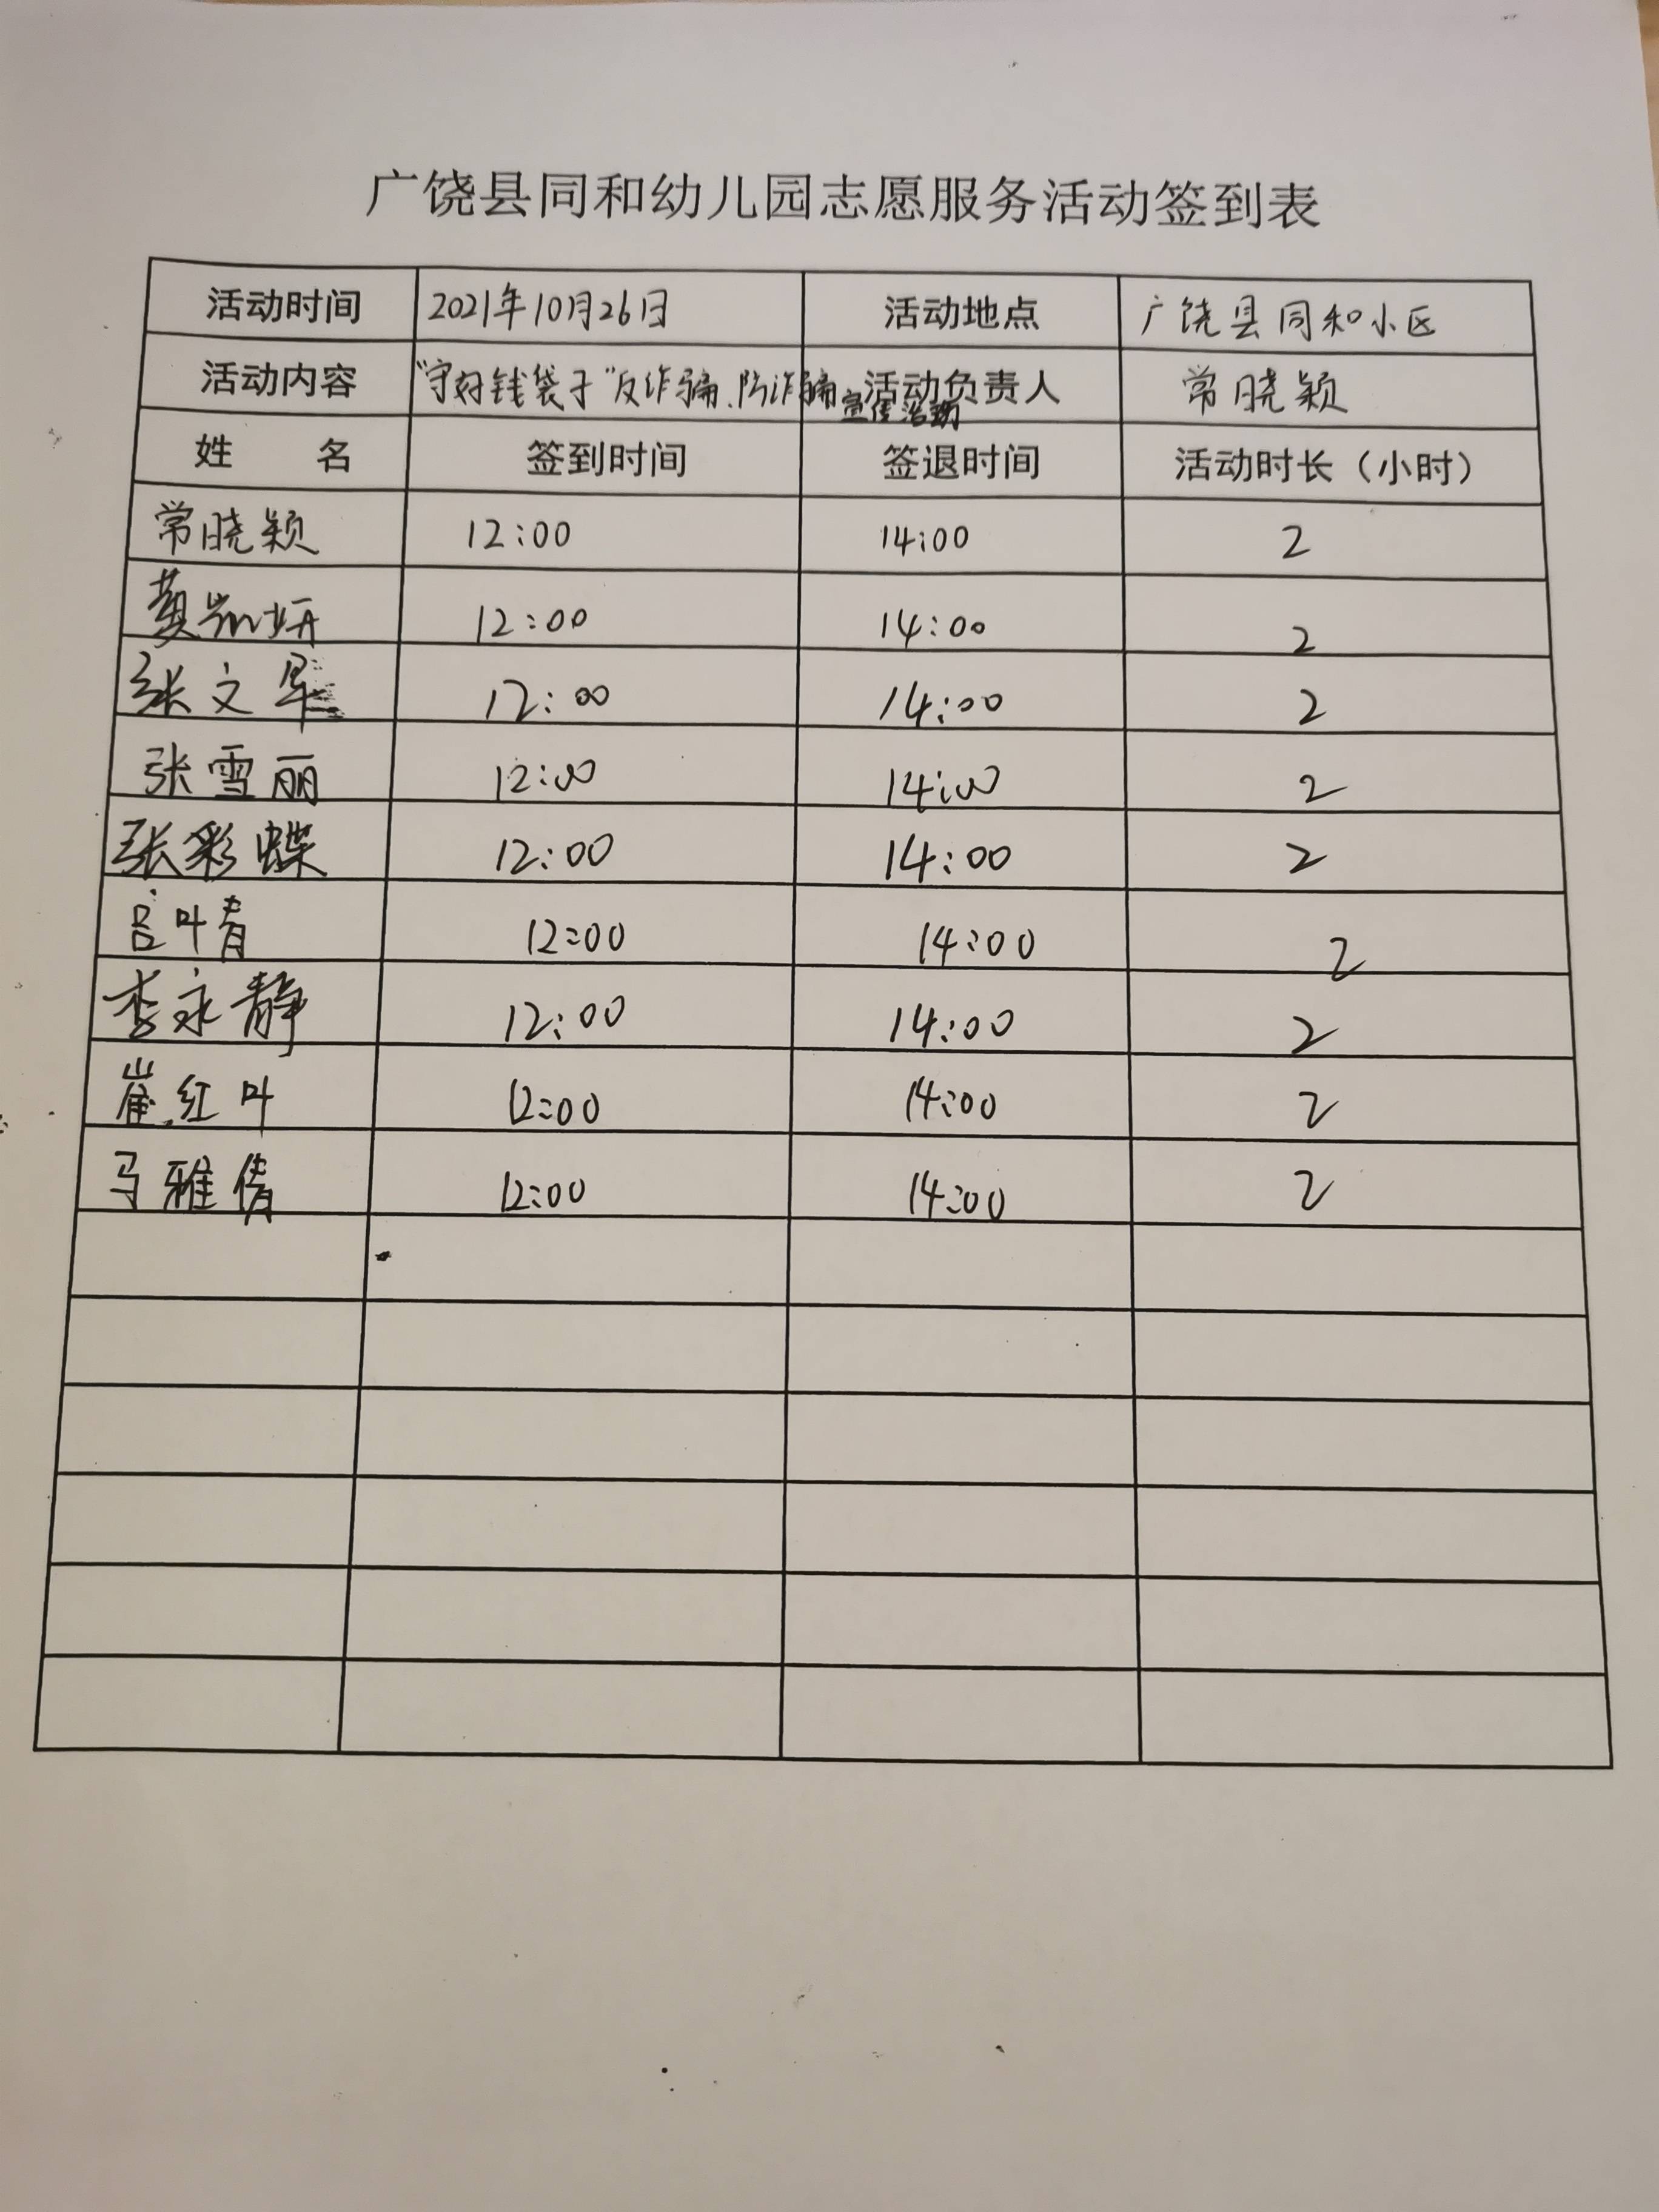 广饶县同和幼儿园志愿服务活动签到表
活动时间 2021年10月26日 活动地点 广饶县同和小区
活动内容 "守好钱袋子"反诈骗、防诈骗宣传活动 活动负责人 常晓颖
姓 名 签到时间 签退时间 活动时长（小时）
常晓颖 12:00 14:00 2
黄凯妍 12:00 14:00 2
张文 12:00 14:00 2
张雪丽 12:00 14:00 2
张彩蝶 12:00 14:00 2
吕叶青 12:00 14:00 2
李永静 12:00 14:00 2
崔红叶 12:00 14:00 2
马雅倩 12:00 14:00 2